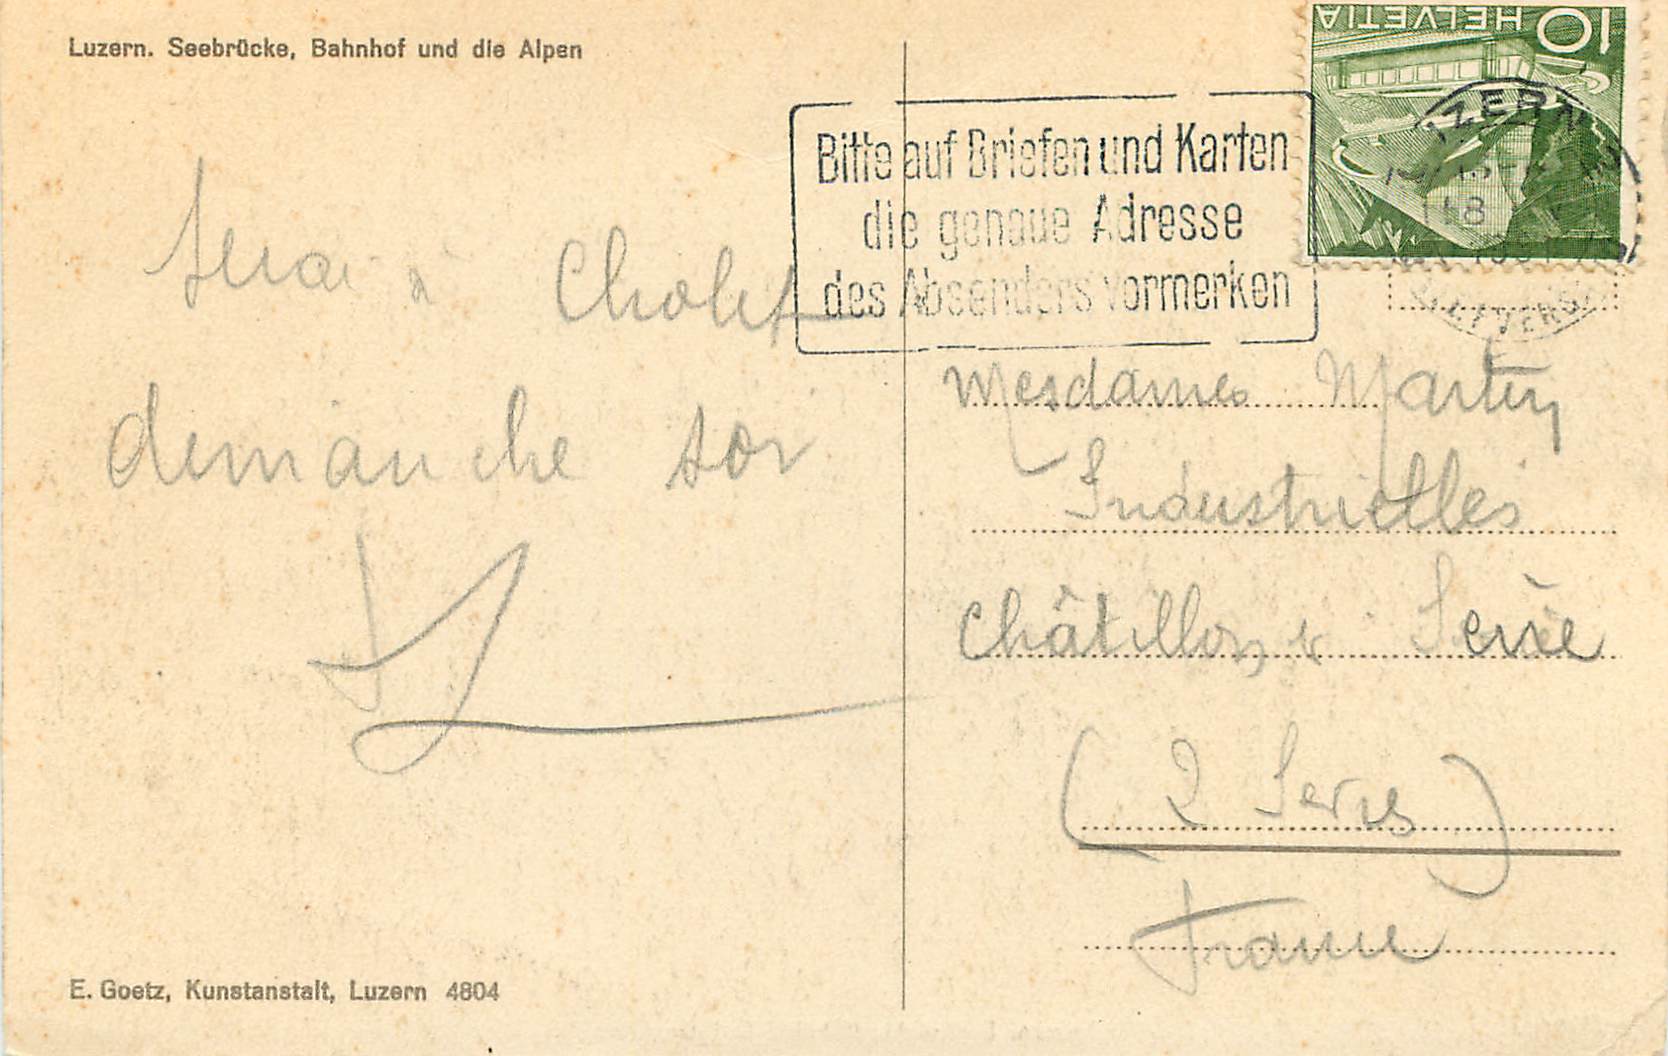 Luzern. Seebrücke, Bahnhof und die Alpen
HELVETIA 10
Bitte auf Briefen und Karten
die genaue Adresse
des Absenders vormerken
serai à Cholet
dimanche soir
Mesdames Martin
Industrielles
Châtillon s Sèvre
(2 Sèvres)
France
E. Goetz, Kunstanstalt, Luzern 4804